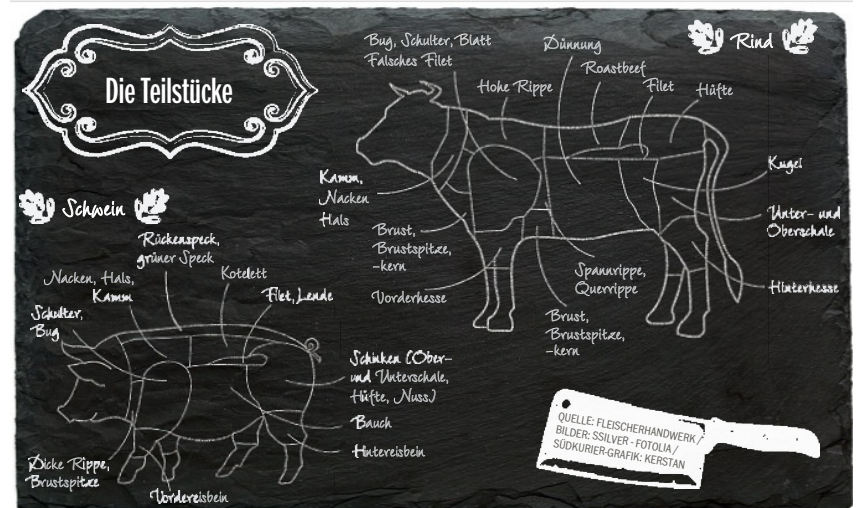 Die Teilstücke
Rind
Bug, Schulter, Blatt
Falsches Filet
Dünnung
Roastbeef
Hohe Rippe
Filet
Hüfte
Kamm,
Nacken
Hals
Kugel
Unter- und
Oberschale
Brust,
Brustspitze,
-kern
Spannrippe,
Querrippe
Vorderhesse
Hinterhesse
Brust,
Brustspitze,
-kern
Schwein
Rückenspeck,
grüner Speck
Nacken, Hals,
Kamm
Kotelett
Filet, Lende
Schulter,
Bug
Schinken (Ober-
und Unterschale,
Hüfte, Nuss)
Bauch
Hintereisbein
Dicke Rippe,
Brustspitze
Vordereisbein
QUELLE: FLEISCHERHANDWERK /
BILDER: SSILVER - FOTOLIA /
SÜDKURIER-GRAFIK: KERSTAN